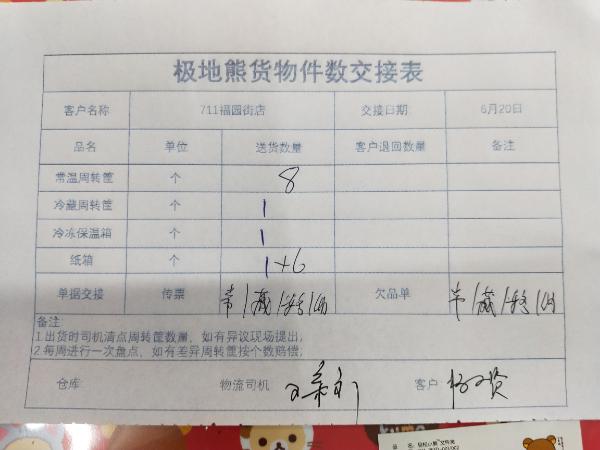 极地熊货物件数交接表
客户名称 711福园街店 交接日期 6月20日
品名 单位 送货数量 客户退回数量 备注
常温周转筐 个 8
冷藏周转筐 个 1
冷冻保温箱 个 1
纸箱 个 1+6
单据交接 传票 欠品单
备注
1.出货时司机清点周转筐数量，如有异议现场提出;
2.每周进行一次盘点，如有差异周转筐按个数赔偿;
仓库 物流司机 客户